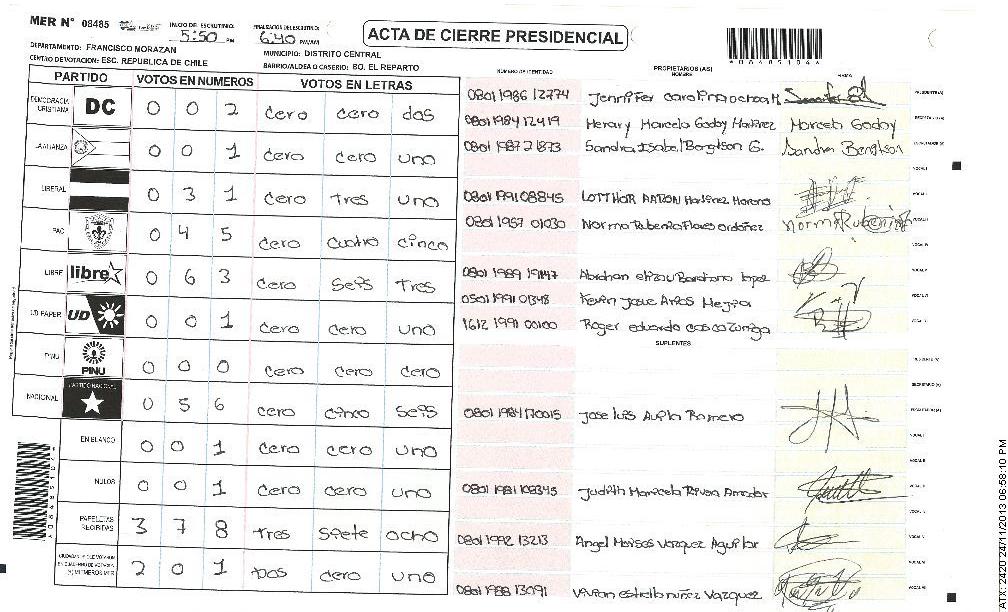 MER N° 08485
INICIO DE ESCRUTINIO: 5:50 PM
FINALIZACION DEL ESCRUTINIO: 6:40 PM/AM
ACTA DE CIERRE PRESIDENCIAL
DEPARTAMENTO: FRANCISCO MORAZAN
MUNICIPIO: DISTRITO CENTRAL
CENTRO DE VOTACION: ESC. REPUBLICA DE CHILE
BARRIO/ALDEA O CASERIO: BO. EL REPARTO
PARTIDO VOTOS EN NUMEROS VOTOS EN LETRAS
NUMERO DE IDENTIDAD PROPIETARIOS (AS) NOMBRE FIRMA
DEMOCRACIA CRISTIANA DC 0 0 2 cero cero dos
LA ALIANZA 0 0 1 cero cero uno
LIBERAL 0 3 1 cero tres uno
PAC 0 4 5 cero cuatro cinco
LIBRE libre 0 6 3 cero seis tres
UD FAPER UD 0 0 1 cero cero uno
PINU PINU 0 0 0 cero cero cero
NACIONAL PARTIDO NACIONAL 0 5 6 cero cinco seis
EN BLANCO 0 0 1 cero cero uno
NULOS 0 0 1 cero cero uno
PAPELETAS RECIBIDAS 3 7 8 tres siete ocho
2 0 1 Dos cero uno
0801 1986 12774 Jennifer carolina ochoa M. PRESIDENTE (A)
0801 1984 12419 Marcela Godoy Martinez Marcela Godoy SECRETARIO (A)
Sandra Isabel Bengtson G. Sandra Bengtson ESCRUTADOR (A)
VOCAL I
0801 1991 08845 LOTTHOR AARON Martinez Moreno VOCAL II
0801 1957 01030 Norma Rubenia Flores ordoñez Norma Rubenia VOCAL III
VOCAL IV
0801 1989 Abrahan lopez VOCAL V
0501 1991 01348 Kevin Jose Arias Mejia VOCAL VI
1612 1991 00100 Roger eduardo VOCAL VII
SUPLENTES
PRESIDENTE (A)
SECRETARIO (A)
0801 1984 17001S Jose Luis Romero ESCRUTADOR (A)
VOCAL I
VOCAL II
0801 1981 108345 Judith Maricela Rivera Amador
VOCAL IV
0801 1992 13213 Angel Moises Vazquez Aguilar VOCAL V
VOCAL VI
0801 1988 13091 Vivian estrella nuñez Vazquez VOCAL VII
24/11/2013 06:58:10 PM